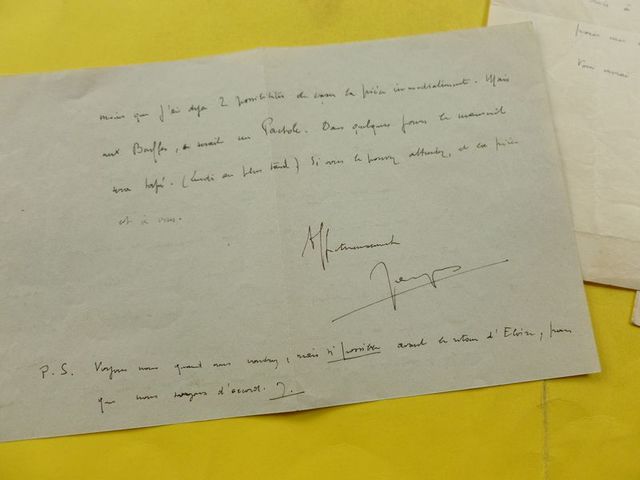 à
pièce
moins que j'ai déjà 2 possibilités de caser la pièce immédiatement. Mais
aux Bouffes, ce serait un Pactole. Dans quelques jours le manuscrit
sera tapé. (Lundi au plus tard) Si vous le pouvez attendez, et la pièce
est à vous.
Affectueusement
P.S. Voyons nous quand vous voudrez, mais si possible avant le retour d'Eloïse, pour
que nous soyons d'accord. J.